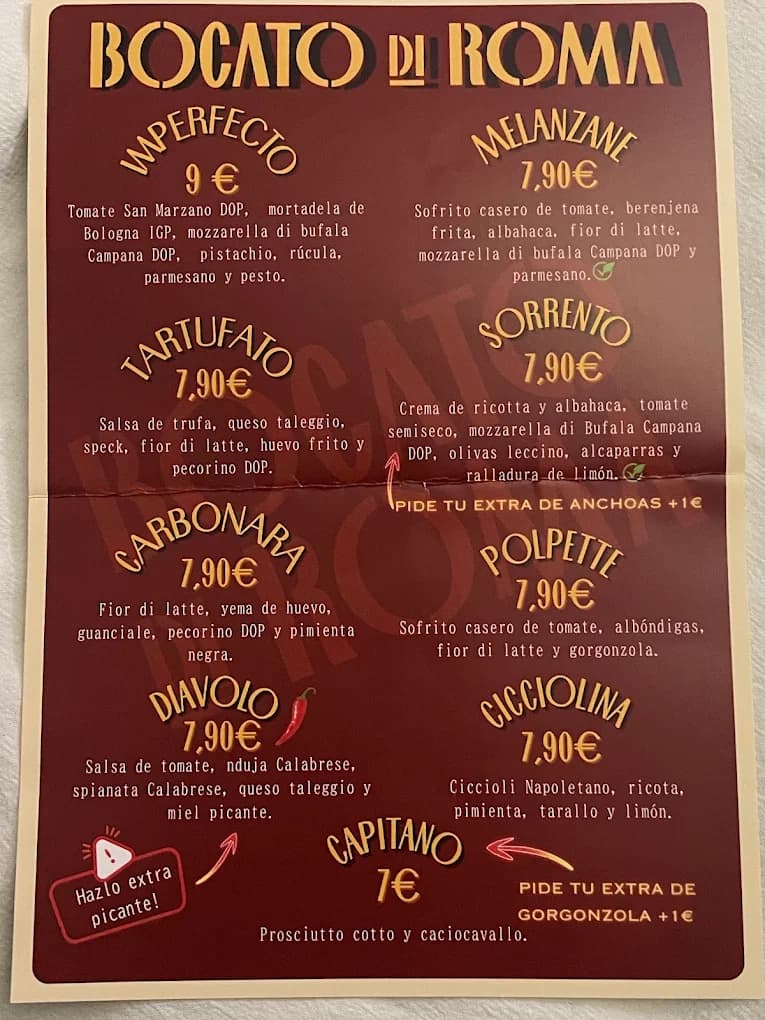 BOCATO DI ROMA
IMPERFECTO
9 €
Tomate San Marzano DOP, mortadela de
Bologna IGP, mozzarella di bufala
Campana DOP, pistachio, rúcula,
parmesano y pesto.
MELANZANE
7,90€
Sofrito casero de tomate, berenjena
frita, albahaca, fior di latte,
mozzarella di bufala Campana DOP y
parmesano.
TARTUFATO
7,90€
Salsa de trufa, queso taleggio,
speck, fior di latte, huevo frito y
pecorino DOP.
SORRENTO
7,90€
Crema de ricotta y albahaca, tomate
semiseco, mozzarella di Bufala Campana
DOP, olivas leccino, alcaparras y
ralladura de limón.
PIDE TU EXTRA DE ANCHOAS +1€
CARBONARA
7,90€
Fior di latte, yema de huevo,
guanciale, pecorino DOP y pimienta
negra.
POLPETTE
7,90€
Sofrito casero de tomate, albóndigas,
fior di latte y gorgonzola.
DIAVOLO
7,90€
Salsa de tomate, nduja Calabrese,
spianata Calabrese, queso taleggio y
miel picante.
Hazlo extra
picante!
CICCIOLINA
7,90€
Ciccioli Napoletano, ricota,
pimienta, tarallo y limón.
CAPITANO
7€
Prosciutto cotto y caciocavallo.
PIDE TU EXTRA DE
GORGONZOLA +1€
BOCATO
DI ROMA